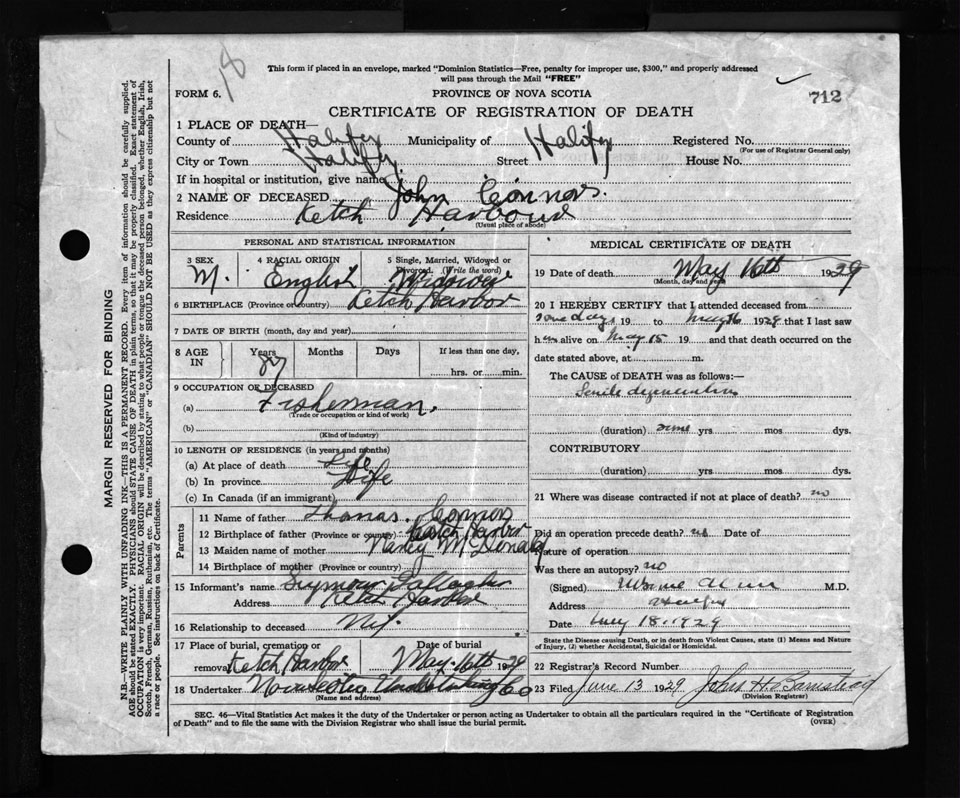 18
This form if placed in an envelope, marked "Dominion Statistics—Free, penalty for improper use, $300," and properly addressed
will pass through the Mail "FREE"
FORM 6. PROVINCE OF NOVA SCOTIA 712
CERTIFICATE OF REGISTRATION OF DEATH
1 PLACE OF DEATH—
County of Halifax Municipality of Halifax Registered No.
(For use of Registrar General only)
City or Town Halifax Street House No.
If in hospital or institution, give name
2 NAME OF DECEASED John Connors.
Residence Ketch Harbour
(Usual place of abode)
PERSONAL AND STATISTICAL INFORMATION
3 SEX 4 RACIAL ORIGIN 5 Single, Married, Widowed or
Divorced. (Write the word)
M. English Widower
6 BIRTHPLACE (Province or country) Ketch Harbor
7 DATE OF BIRTH (month, day and year)
8 AGE IN Years Months Days If less than one day,
87 hrs. or min.
9 OCCUPATION OF DECEASED
(a) Fisherman.
(Trade or occupation or kind of work)
(b)
(Kind of industry)
10 LENGTH OF RESIDENCE (in years and months)
(a) At place of death Life
(b) In province Life
(c) In Canada (if an immigrant)
Parents
11 Name of father Thomas Connors
12 Birthplace of father (Province or country) Ketch Harbor
13 Maiden name of mother Nancy McDonald
14 Birthplace of mother (Province or country)
15 Informant's name Seymour Gallagher
Address Ketch Harbor
16 Relationship to deceased
17 Place of burial, cremation or Date of burial
removal Ketch Harbor May 16th 1929
18 Undertaker Nova Scotia Undertaking Co
(Name and address)
MEDICAL CERTIFICATE OF DEATH
19 Date of death May 16th 1929
(Month, day and year)
20 I HEREBY CERTIFY that I attended deceased from
some days 19 to May 16 1929 that I last saw
him alive on May 15 19 and that death occurred on the
date stated above, at m.
The CAUSE of DEATH was as follows:—
Senile degeneration
(duration) some yrs mos dys.
CONTRIBUTORY
(duration) yrs mos dys.
21 Where was disease contracted if not at place of death? no
Did an operation precede death? no Date of
Nature of operation
Was there an autopsy? no
(Signed) M.D.
Address Halifax
Date May 18. 1929
State the Disease causing Death, or in death from Violent Causes, state (1) Means and Nature
of Injury, (2) whether Accidental, Suicidal or Homicidal.
22 Registrar's Record Number
23 Filed June 13 1929 John H. Barnstead
(Division Registrar)
SEC. 46—Vital Statistics Act makes it the duty of the Undertaker or person acting as Undertaker to obtain all the particulars required in the "Certificate of Registration
of Death" and to file the same with the Division Registrar who shall issue the burial permit. (OVER)
MARGIN RESERVED FOR BINDING
N.B.—WRITE PLAINLY WITH UNFADING INK—THIS IS A PERMANENT RECORD. Every item of information should be carefully supplied.
AGE should be stated EXACTLY. PHYSICIANS should STATE CAUSE OF DEATH in plain terms, so that it may be properly classified. Exact statement of
OCCUPATION is very important. RACIAL ORIGIN will be described by stating to what people or tongue the deceased person belonged, whether English, Irish,
Scotch, French, German, Russian, Ruthenian, etc. The terms "AMERICAN" or "CANADIAN" SHOULD NOT BE USED as they express citizenship but not
a race or people. See instructions on back of Certificate.